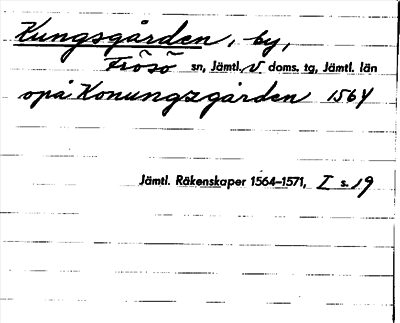 Kungsgården, by,
Frösö sn, Jämtl. V doms. tg, Jämtl. län
opå Konungzgården 1564
Jämtl. Räkenskaper 1564–1571, I s. 19